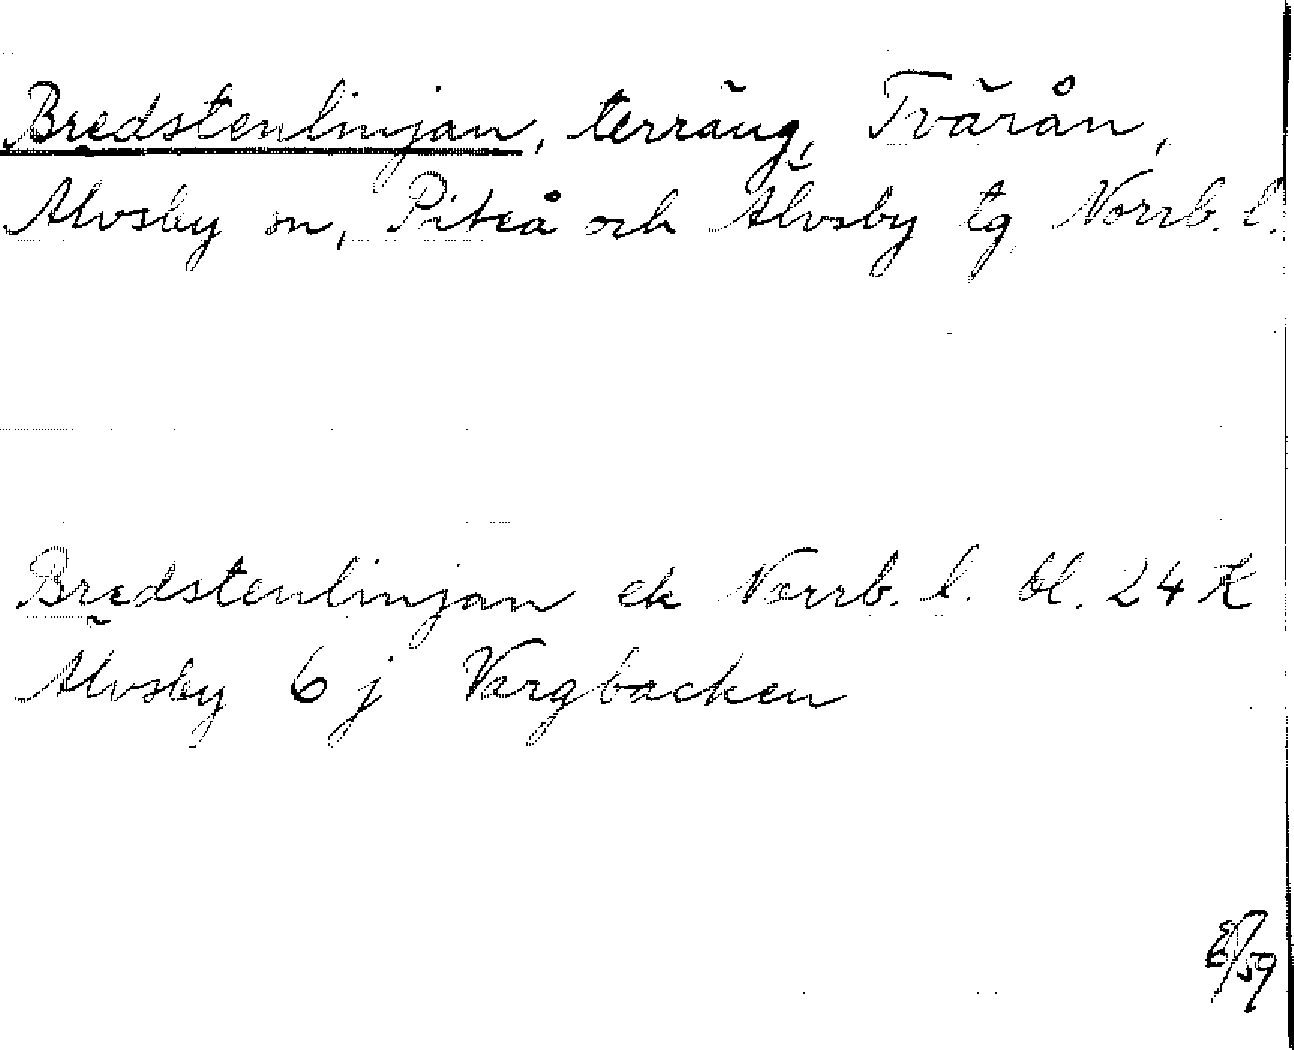 Bredstenlinjan, terräng, Tvärån,
Älvsby sn, Piteå och Älvsby tg Norrb. l.
Bredstenlinjan ek Norrb. l. bl. 24 K
Älvsby 6 j Vargbacken